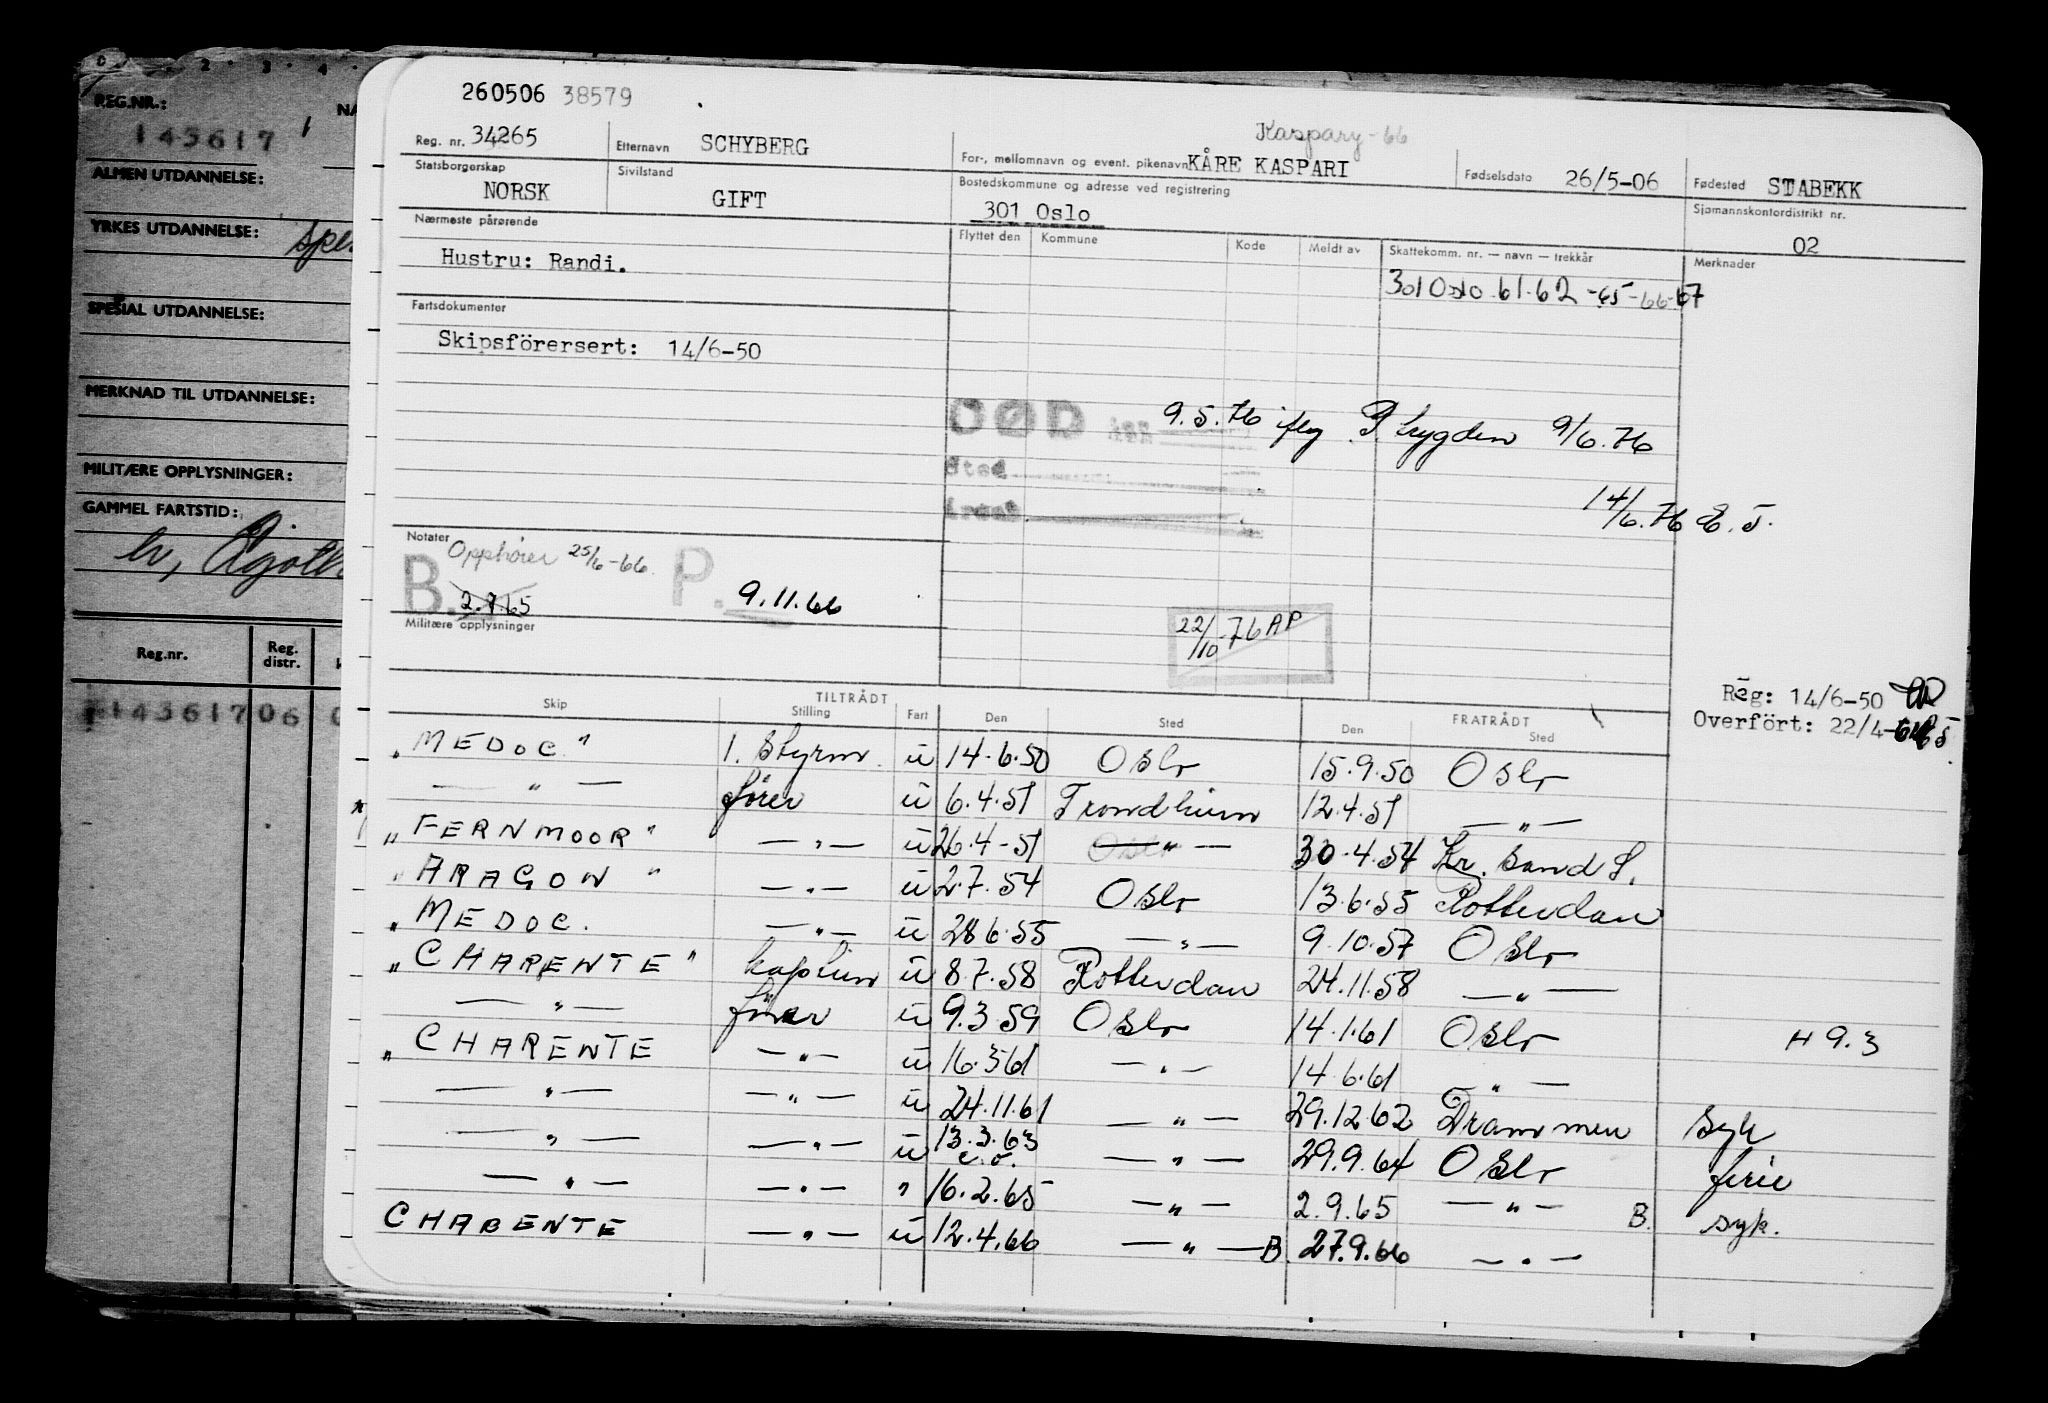 260506 38579
Kaspary-66
Reg. nr. 34265 Etternavn SCHYBERG For-, mellomnavn og event. pikenavn KÅRE KASPARI Fødselsdato 26/5-06 Fødested STABEKK
Statsborgerskap NORSK Sivilstand GIFT Bostedskommune og adresse ved registrering 301 Oslo Sjømannskontordistrikt nr. 02
Nærmeste pårørende Flyttet den Kommune Kode Meldt av Skattekomm. nr. — navn — trekkår Merknader
Hustru: Randi. 301 Oslo 61-62-65-66-67
Fartsdokumenter
Skipsförersert: 14/6-50
DØD den 9.5.76 iflg P. trygden 9/6.76
Sted
Årsak 14/6.76 E.S.
Notater
B. Opphører 25/6-66. P. 9.11.66
2.9.65
Militære opplysninger
22/10-76 AP
Reg: 14/6-50
Overfört: 22/4-
TILTRÅDT FRATRÅDT
Skip Stilling Fart Den Sted Den Sted
"MEDOC" 1. Styrm. u 14.6.50 Oslo 15.9.50 Oslo
— " — fører u 6.4.51 Trondheim 12.4.51 — " —
"FERNMOOR" — " — u 26.4-51 — " — 30.4.54 Kr. Sand S.
"ARAGON" — " — u 2.7.54 Oslo 13.6.55 Rotterdam
"MEDOC. — " — u 28.6.55 — " — 9.10.57 Oslo
"CHARENTE" kaptein u 8.7.58 Rotterdam 24.11.58 — " —
— " — fører u 9.3.59 Oslo 14.1.61 Oslo H 9.3
"CHARENTE — " — u 16.3.61 — " — 14.6.61 " —
— " — — " — u 24.11.61 — " — 29.12.62 Drammen syk
— " — — " — u 13.3.63 — " — 29.9.64 Oslo ferie
— " — — " — " 16.2.65 — " — 2.9.65 — " — B. syk.
CHARENTE — " — u 12.4.66 — " — B. 27.9.66 — " —
REG.NR.:
143617
ALMEN UTDANNELSE:
YRKES UTDANNELSE:
SPESIAL UTDANNELSE:
MERKNAD TIL UTDANNELSE:
MILITÆRE OPPLYSNINGER:
GAMMEL FARTSTID:
Reg.nr. Reg. distr.
143617 06